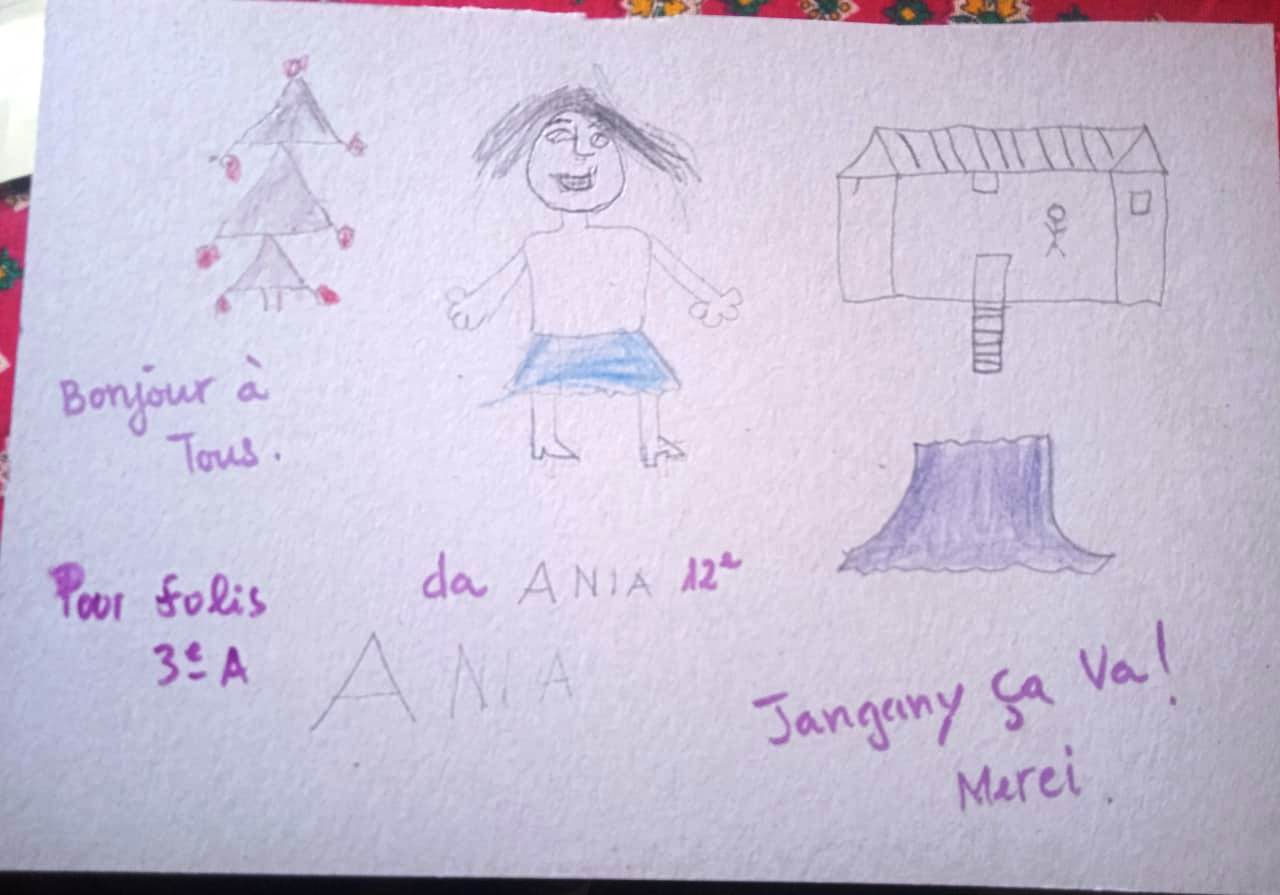 Bonjour à
Tous.
Pour folis
3e A
da ANIA 12e
ANIA
Jangany ça Va!
Merci.